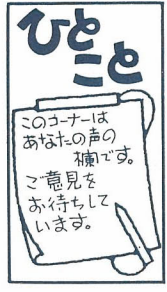 ひと
こと
このコーナーは
あなたの声の
欄です。
ご意見を
お待ちして
います。